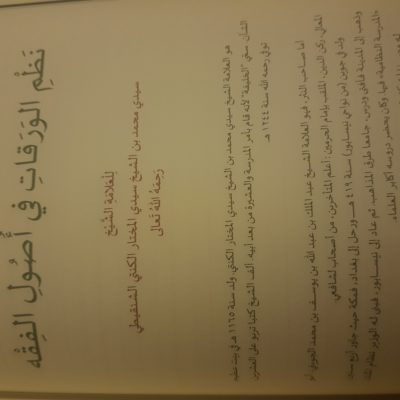 نَظْمِ الوَرَقاتِ فِي أُصُولِ الفِقْه
لِلْعَلامَةِ الشَّيْخ
سيدي محمد بن الشيخ سيدي المختار الكنتي الشنقيطي
رَحِمَهُ اللهُ تَعالى
هو العلامة الشيخ سيدي محمد بن الشيخ سيدي المختار الكنتي. ولد سنة ١١٦٥ هـ في بيت عظيم
الشأن. سمّي "الخليفة" لأنه قام بأمر المدرسة والعشيرة من بعد أبيه. ألف الشيخ كتبا تربو على العشرين.
توفي رحمه الله سنة ١٢٤٤ هـ.
أما صاحب النثر، فهو العلامة الشيخ عبد الملك بن عبد الله بن يوسف بن محمد الجويني، أبو
المعالي، ركن الدين، الملقب بإمام الحرمين: أعلم المتأخرين، من أصحاب الشافعي
ولد في جوين (من نواحي نيسابور) سنة ٤١٩ هـ ورحل إلى بغداد، فمكة حيث جاور أربع سنين
وذهب إلى المدينة فأفتى ودرس، جامعا طرق المذاهب. ثم عاد إلى نيسابور، فبنى له الوزير نظام الملك
«المدرسة النظامية» فيها. وكان يحضر دروسه أكابر العلماء.